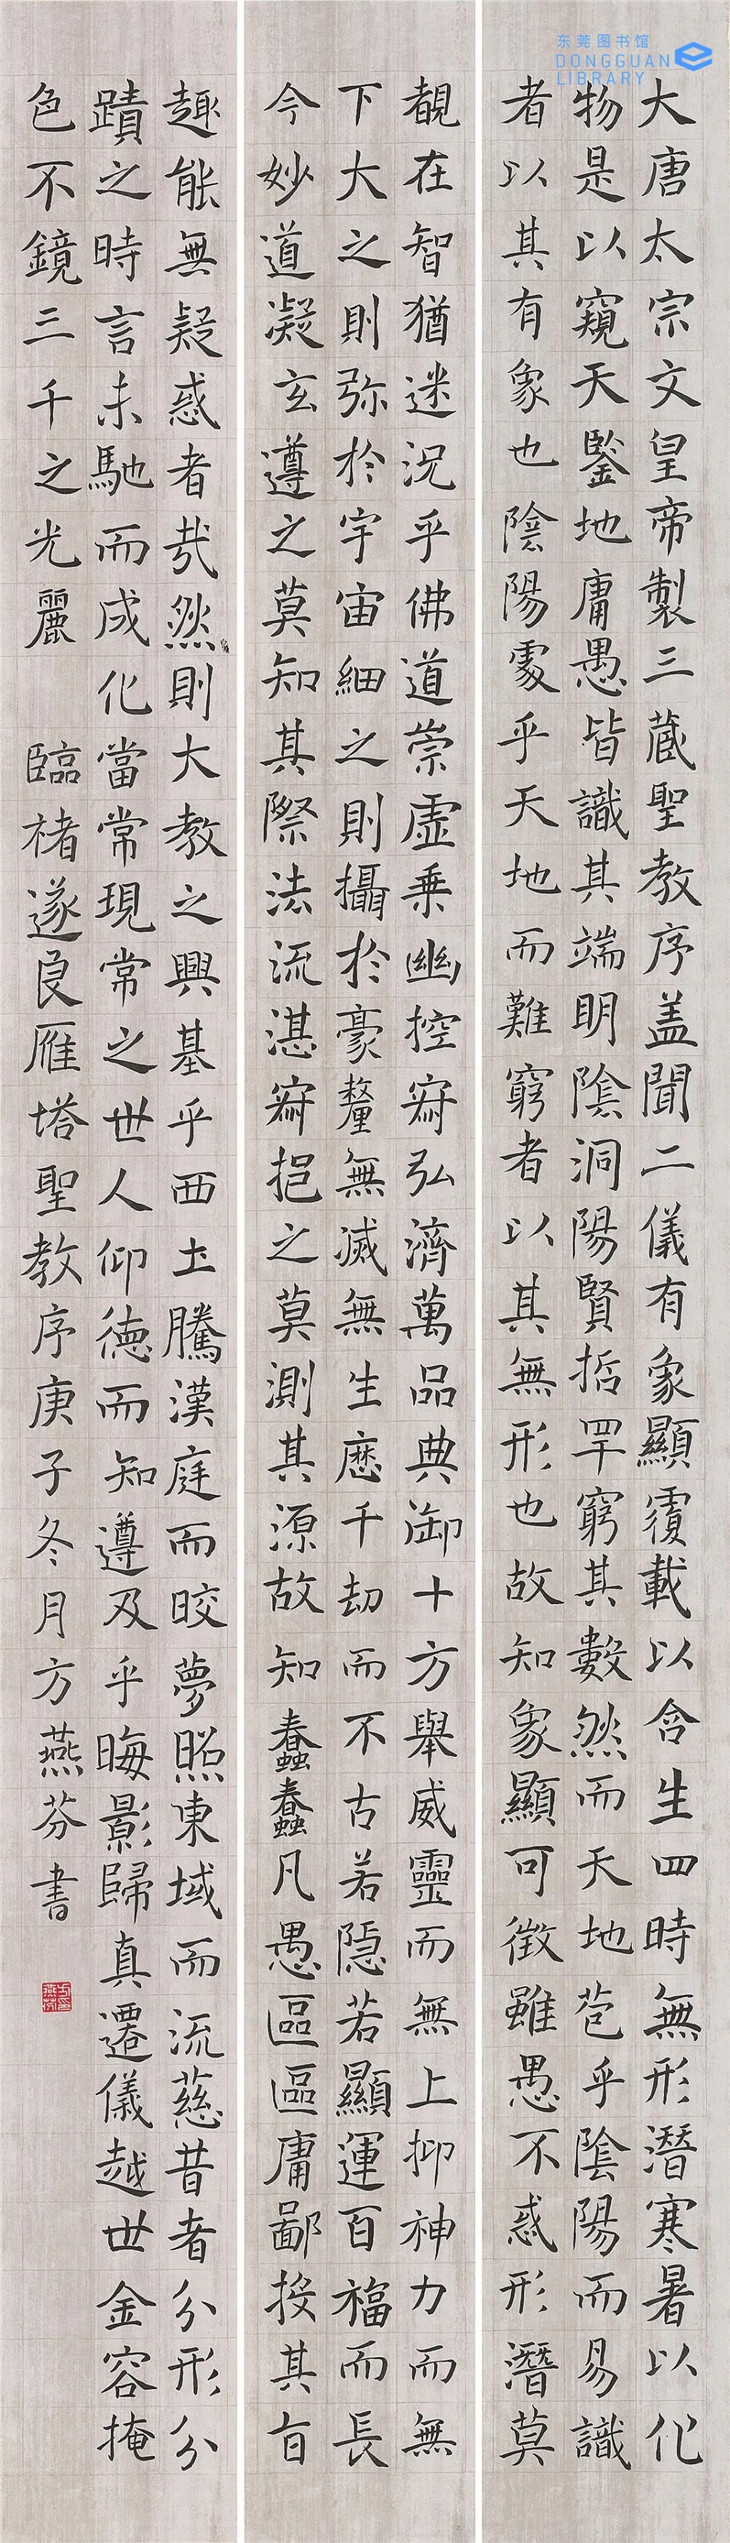 东莞图书馆
DONGGUAN
LIBRARY
大唐太宗文皇帝製三蔵聖教序盖聞二儀有象顯覆載以含生四時無形潛寒暑以化
物是以窺天鑒地庸愚皆識其端明陰洞陽賢哲罕窮其數然而天地苞乎陰陽而易識
者以其有象也陰陽處乎天地而難窮者以其無形也故知象顯可徵雖愚不惑形潛莫
覩在智猶迷況乎佛道崇虛乗幽控寂弘濟萬品典御十方舉威靈而無上抑神力而無
下大之則弥於宇宙細之則攝於豪釐無滅無生歷千劫而不古若隱若顯運百福而長
今妙道凝玄遵之莫知其際法流湛寂挹之莫測其源故知蠢蠢凡愚區區庸鄙投其旨
趣能無疑惑者哉然則大教之興基乎西土騰漢庭而皎夢照東域而流慈昔者分形分
蹟之時言未馳而成化當常現常之世人仰德而知遵及乎晦影歸真遷儀越世金容掩
色不鏡三千之光麗 臨褚遂良雁塔聖教序庚子冬月方燕芬書